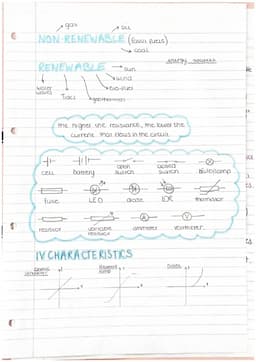 gas
oil
NON-RENEWABLE (fossil fuels)
coal
RENEWABLE → sun
wind
bio-fuel
water
waves
Tides
geothermal
the higher the resistance, the lower the
current that flows in the circuit
cell battery open
switch closed
switch bulb/lamp
fuse LED diode LDR thermistor
resistor variable
resistor ammeter voltmeter
IV CHARACTERISTICS
Diode